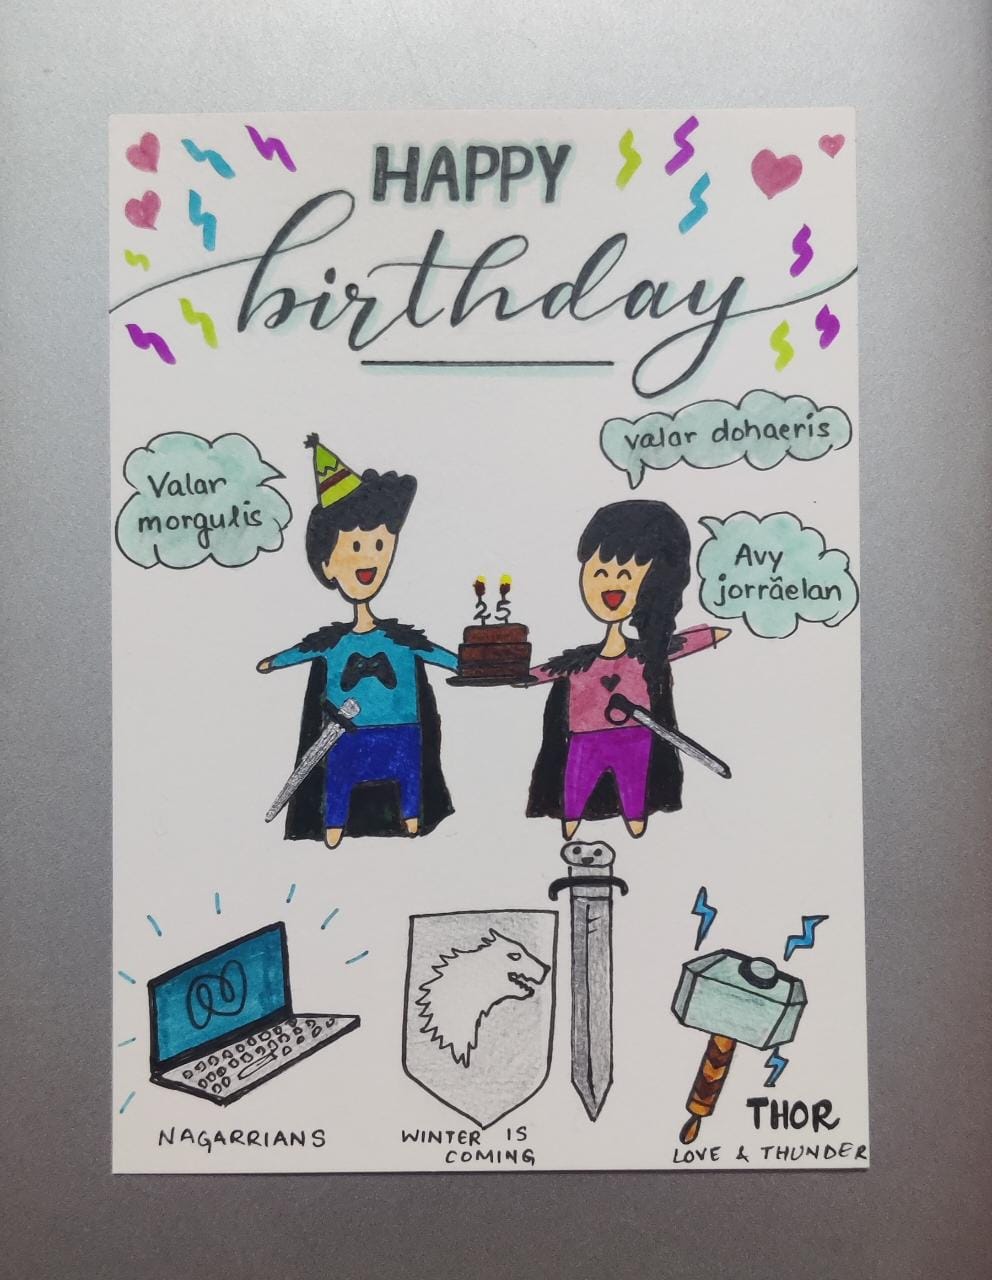 HAPPY
birthday
Valar
morgulis
valar dohaeris
Avy
jorrãelan
25
NAGARRIANS
WINTER IS
COMING
THOR
LOVE & THUNDER